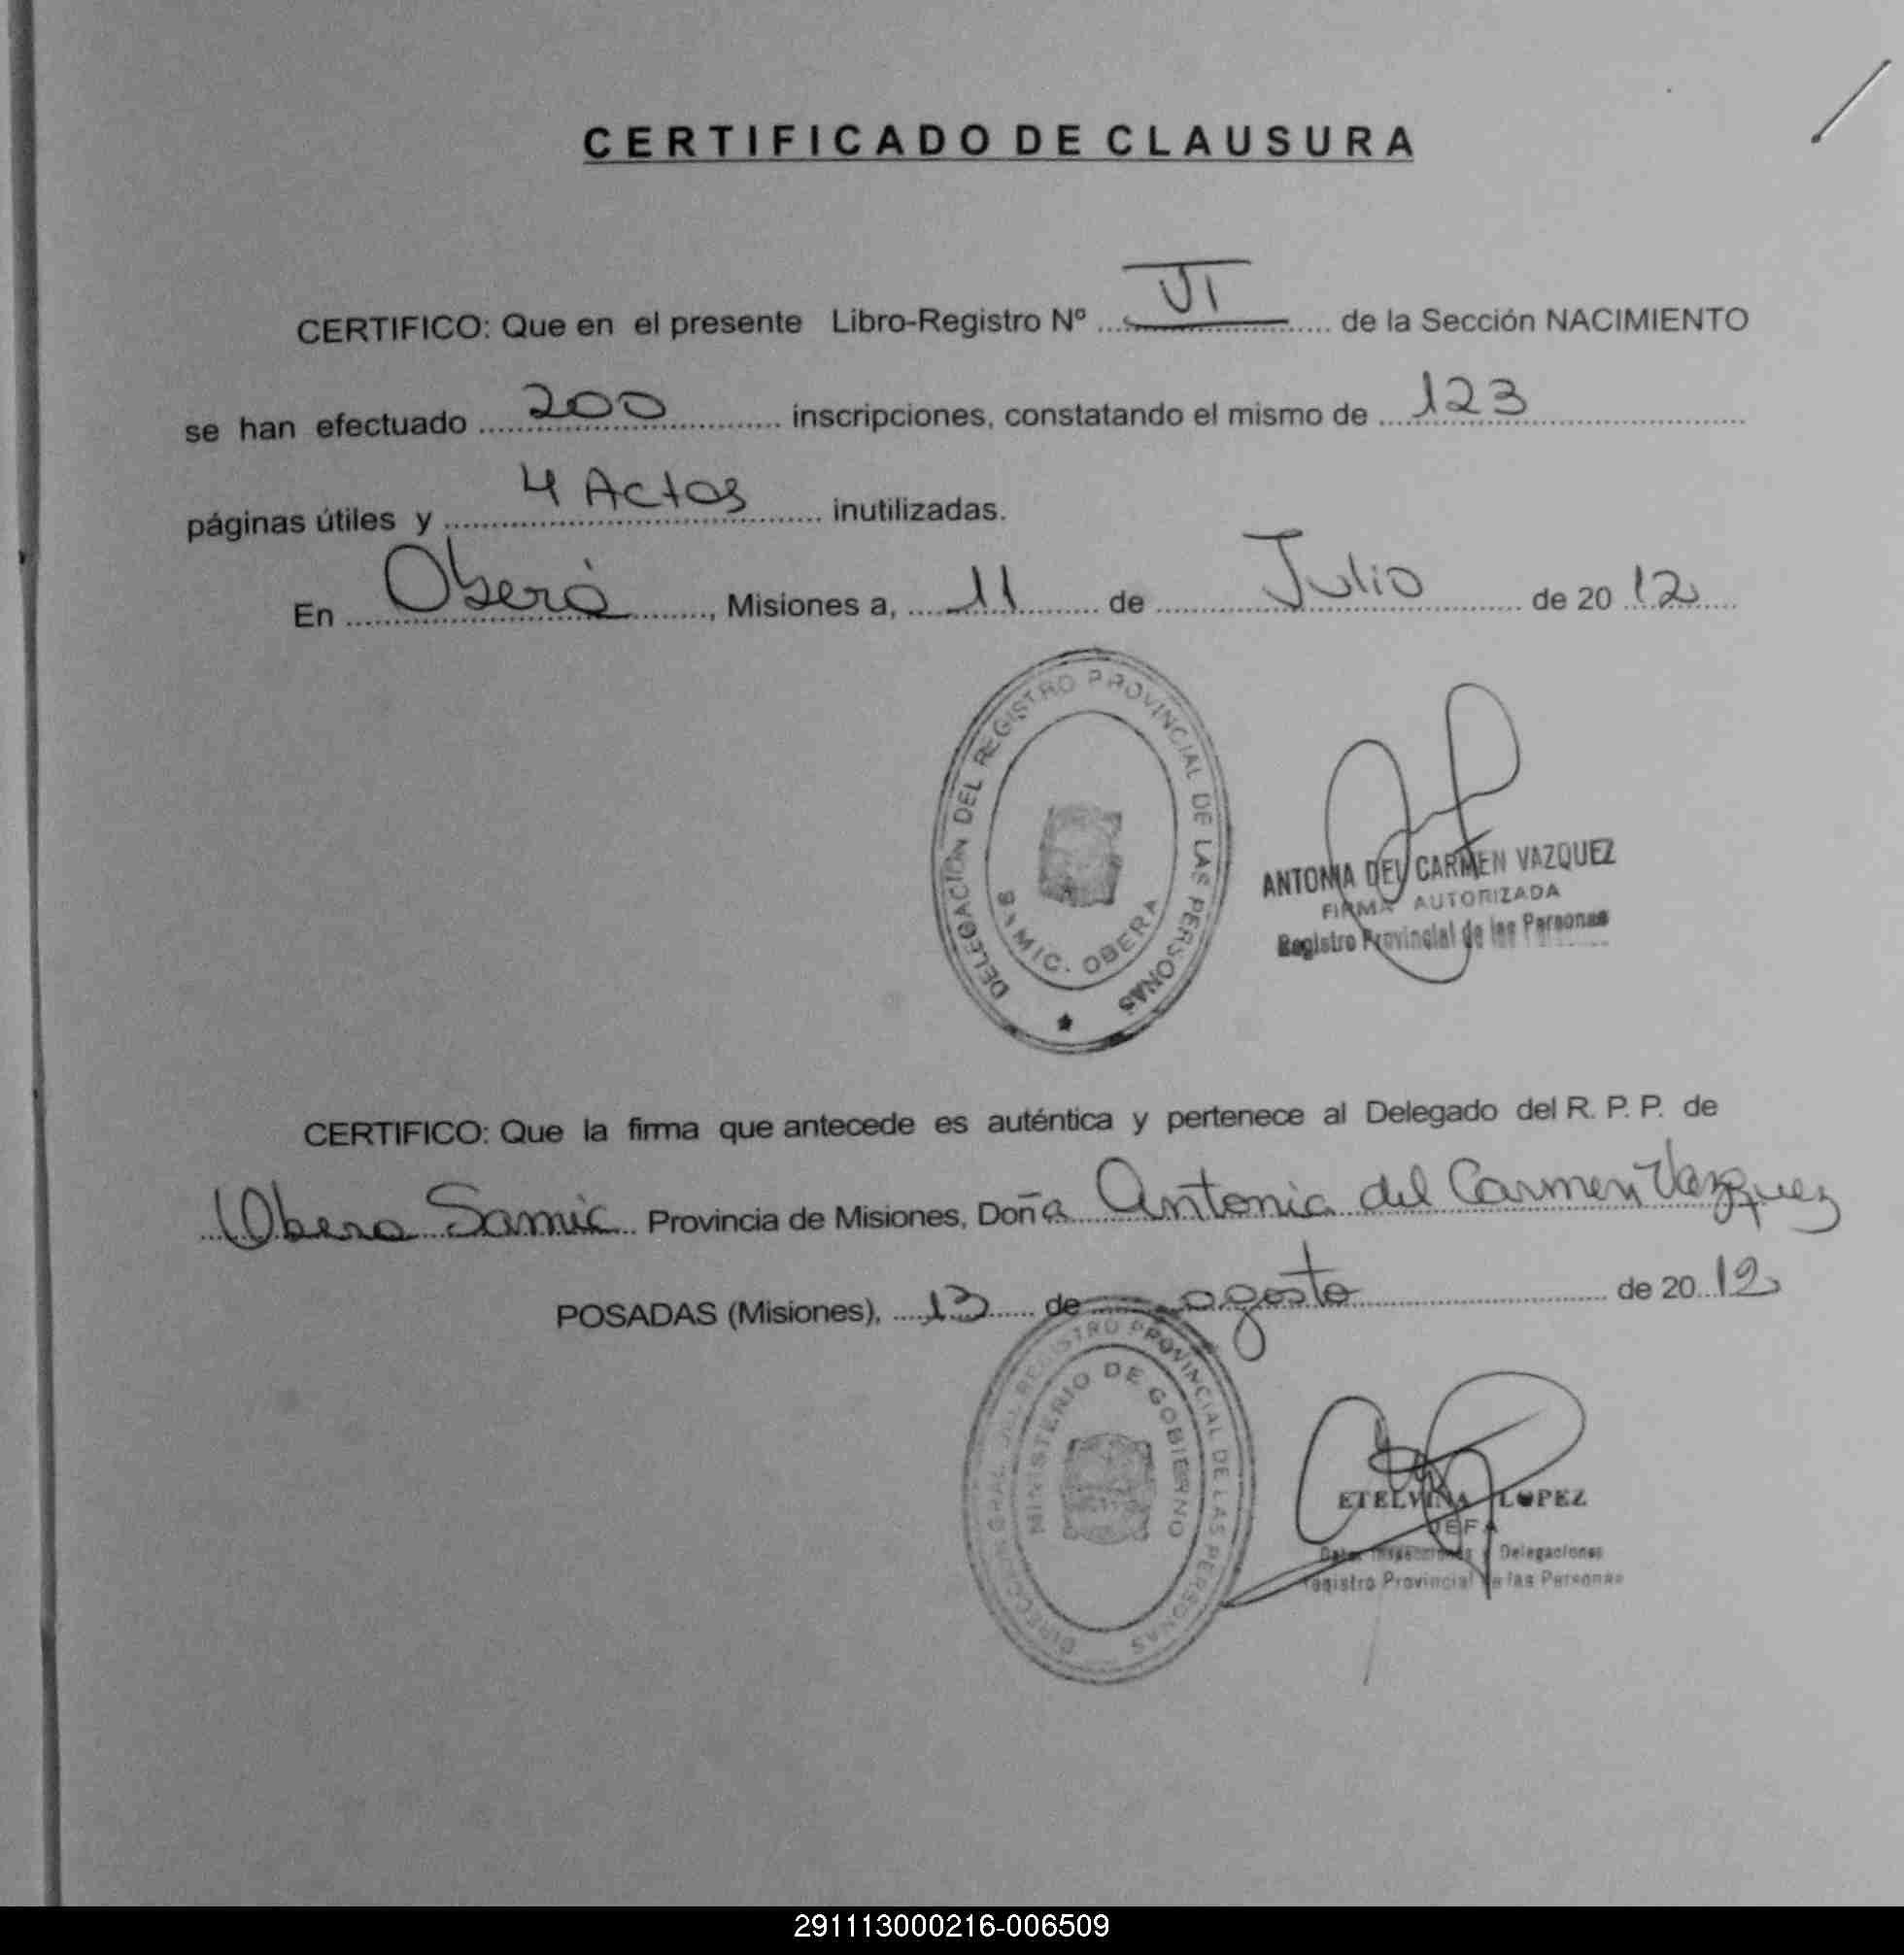 CERTIFICADO DE CLAUSURA
CERTIFICO: Que en el presente Libro-Registro Nº VI de la Sección NACIMIENTO
se han efectuado 200 inscripciones, constatando el mismo de 123
páginas útiles y 4 Actas inutilizadas.
En Oberá, Misiones a, 11 de Julio de 2012
DELEGACION DEL REGISTRO PROVINCIAL DE LAS PERSONAS
SAMIC. OBERA
ANTONIA DEL CARMEN VAZQUEZ
FIRMA AUTORIZADA
Registro Provincial de las Personas
CERTIFICO: Que la firma que antecede es auténtica y pertenece al Delegado del R. P. P. de
Obera Samic Provincia de Misiones, Doña Antonia del Carmen Vazquez
POSADAS (Misiones), 13 de agosto de 2012
DIRECCION GRAL. DEL REGISTRO PROVINCIAL DE LAS PERSONAS
MINISTERIO DE GOBIERNO
ETELVINA LOPEZ
JEFA
Delegaciones
Registro Provincial de las Personas
291113000216-006509